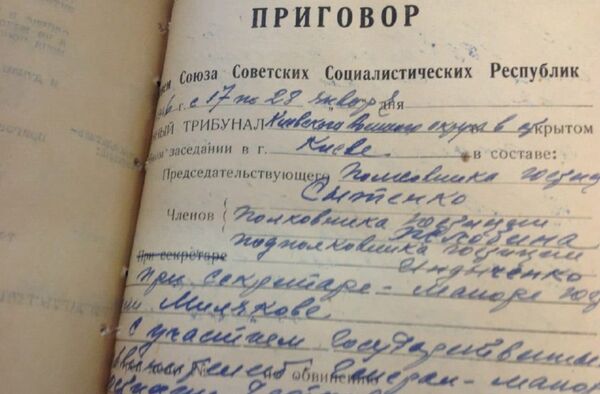 ПРИГОВОР
Союза Советских Социалистических Республик
г. с 17 по 28 января дня
НЫЙ ТРИБУНАЛ Киевского Военного округа в открытом
заседании в г. Киеве в составе:
Председательствующего Полковника юстиции
Сытенко
Членов Полковника юстиции
подполковника юстиции
При секретаре
При секретаре - майоре
с участием Государственных
Генерал-майор
по обвинению